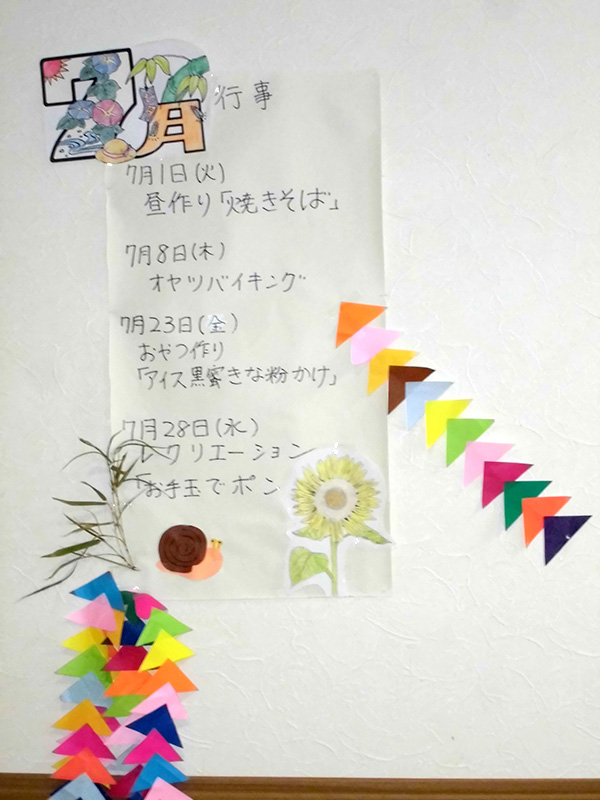 7月 行事
7月1日(火)
昼作り「焼きそば」
7月8日(木)
オヤツバイキング
7月23日(金)
おやつ作り
「アイス黒蜜きな粉かけ」
7月28日(水)
レクリエーション
「お手玉でポン